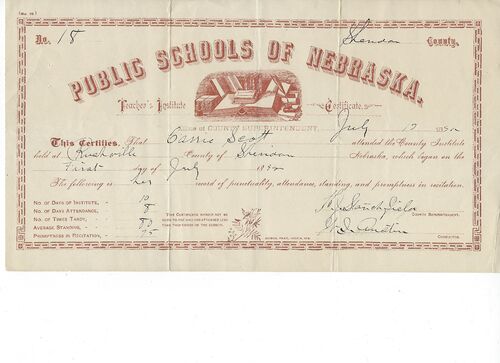 No. 18 Sheridan County.
PUBLIC SCHOOLS OF NEBRASKA.
Teacher's Institute Certificate.
Office of COUNTY SUPERINTENDENT,
July 189
This Certifies, That Carrie Scott attended the County Institute
held at Rushville County of Sheridan Nebraska, which began on the
First day of July 189
The following is her record of punctuality, attendance, standing, and promptness in recitation.
No. of Days of Institute, - 10
No. of Days Attendance, - 8
No. of Times Tardy, -
Average Standing, - 80
Promptness in Recitation, - 95
This Certificate should not be
County Superintendent.
Conductor.